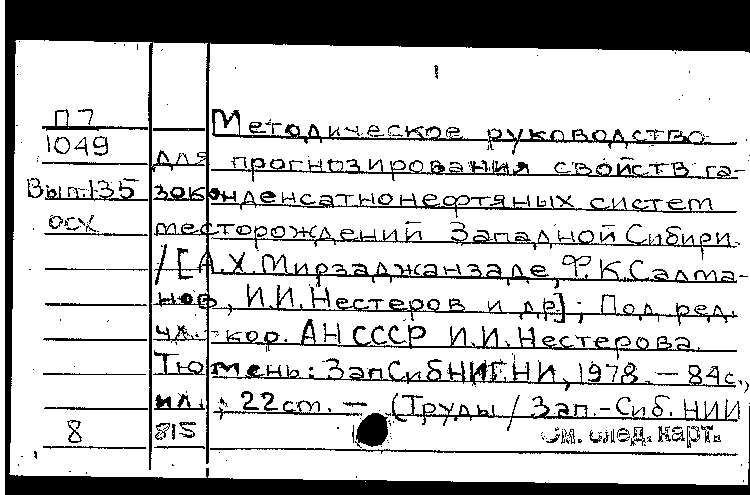 1
П7 Методическое руководство
1049 для прогнозирования свойств га-
Вып.135 зоконденсатнонефтяных систем
осх месторождений Западной Сибири.
/[А.Х.Мирзаджанзаде, Ф.К.Салма-
нов, И.И.Нестеров и др]; Под ред.
чл.-кор. АН СССР И.И.Нестерова.
Тюмень: ЗапСибНИГНИ, 1978. – 84с.,
ил.; 22cm. – (Труды / Зап.-Сиб. НИИ
8 815 См. след. карт.